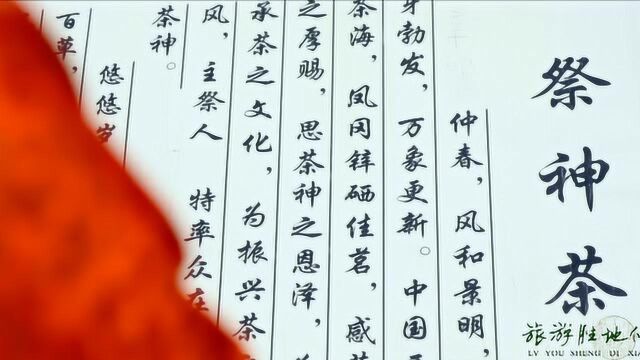 祭神茶
仲春，风和景明，
勃发，万象更新。中国
茶海，凤冈锌硒佳茗，感
之厚赐，思茶神之恩泽，
承茶之文化，为振兴茶
风，主祭人 特率众在
茶神。
悠悠岁
百草，
旅游胜地
LV YOU SHENG DI